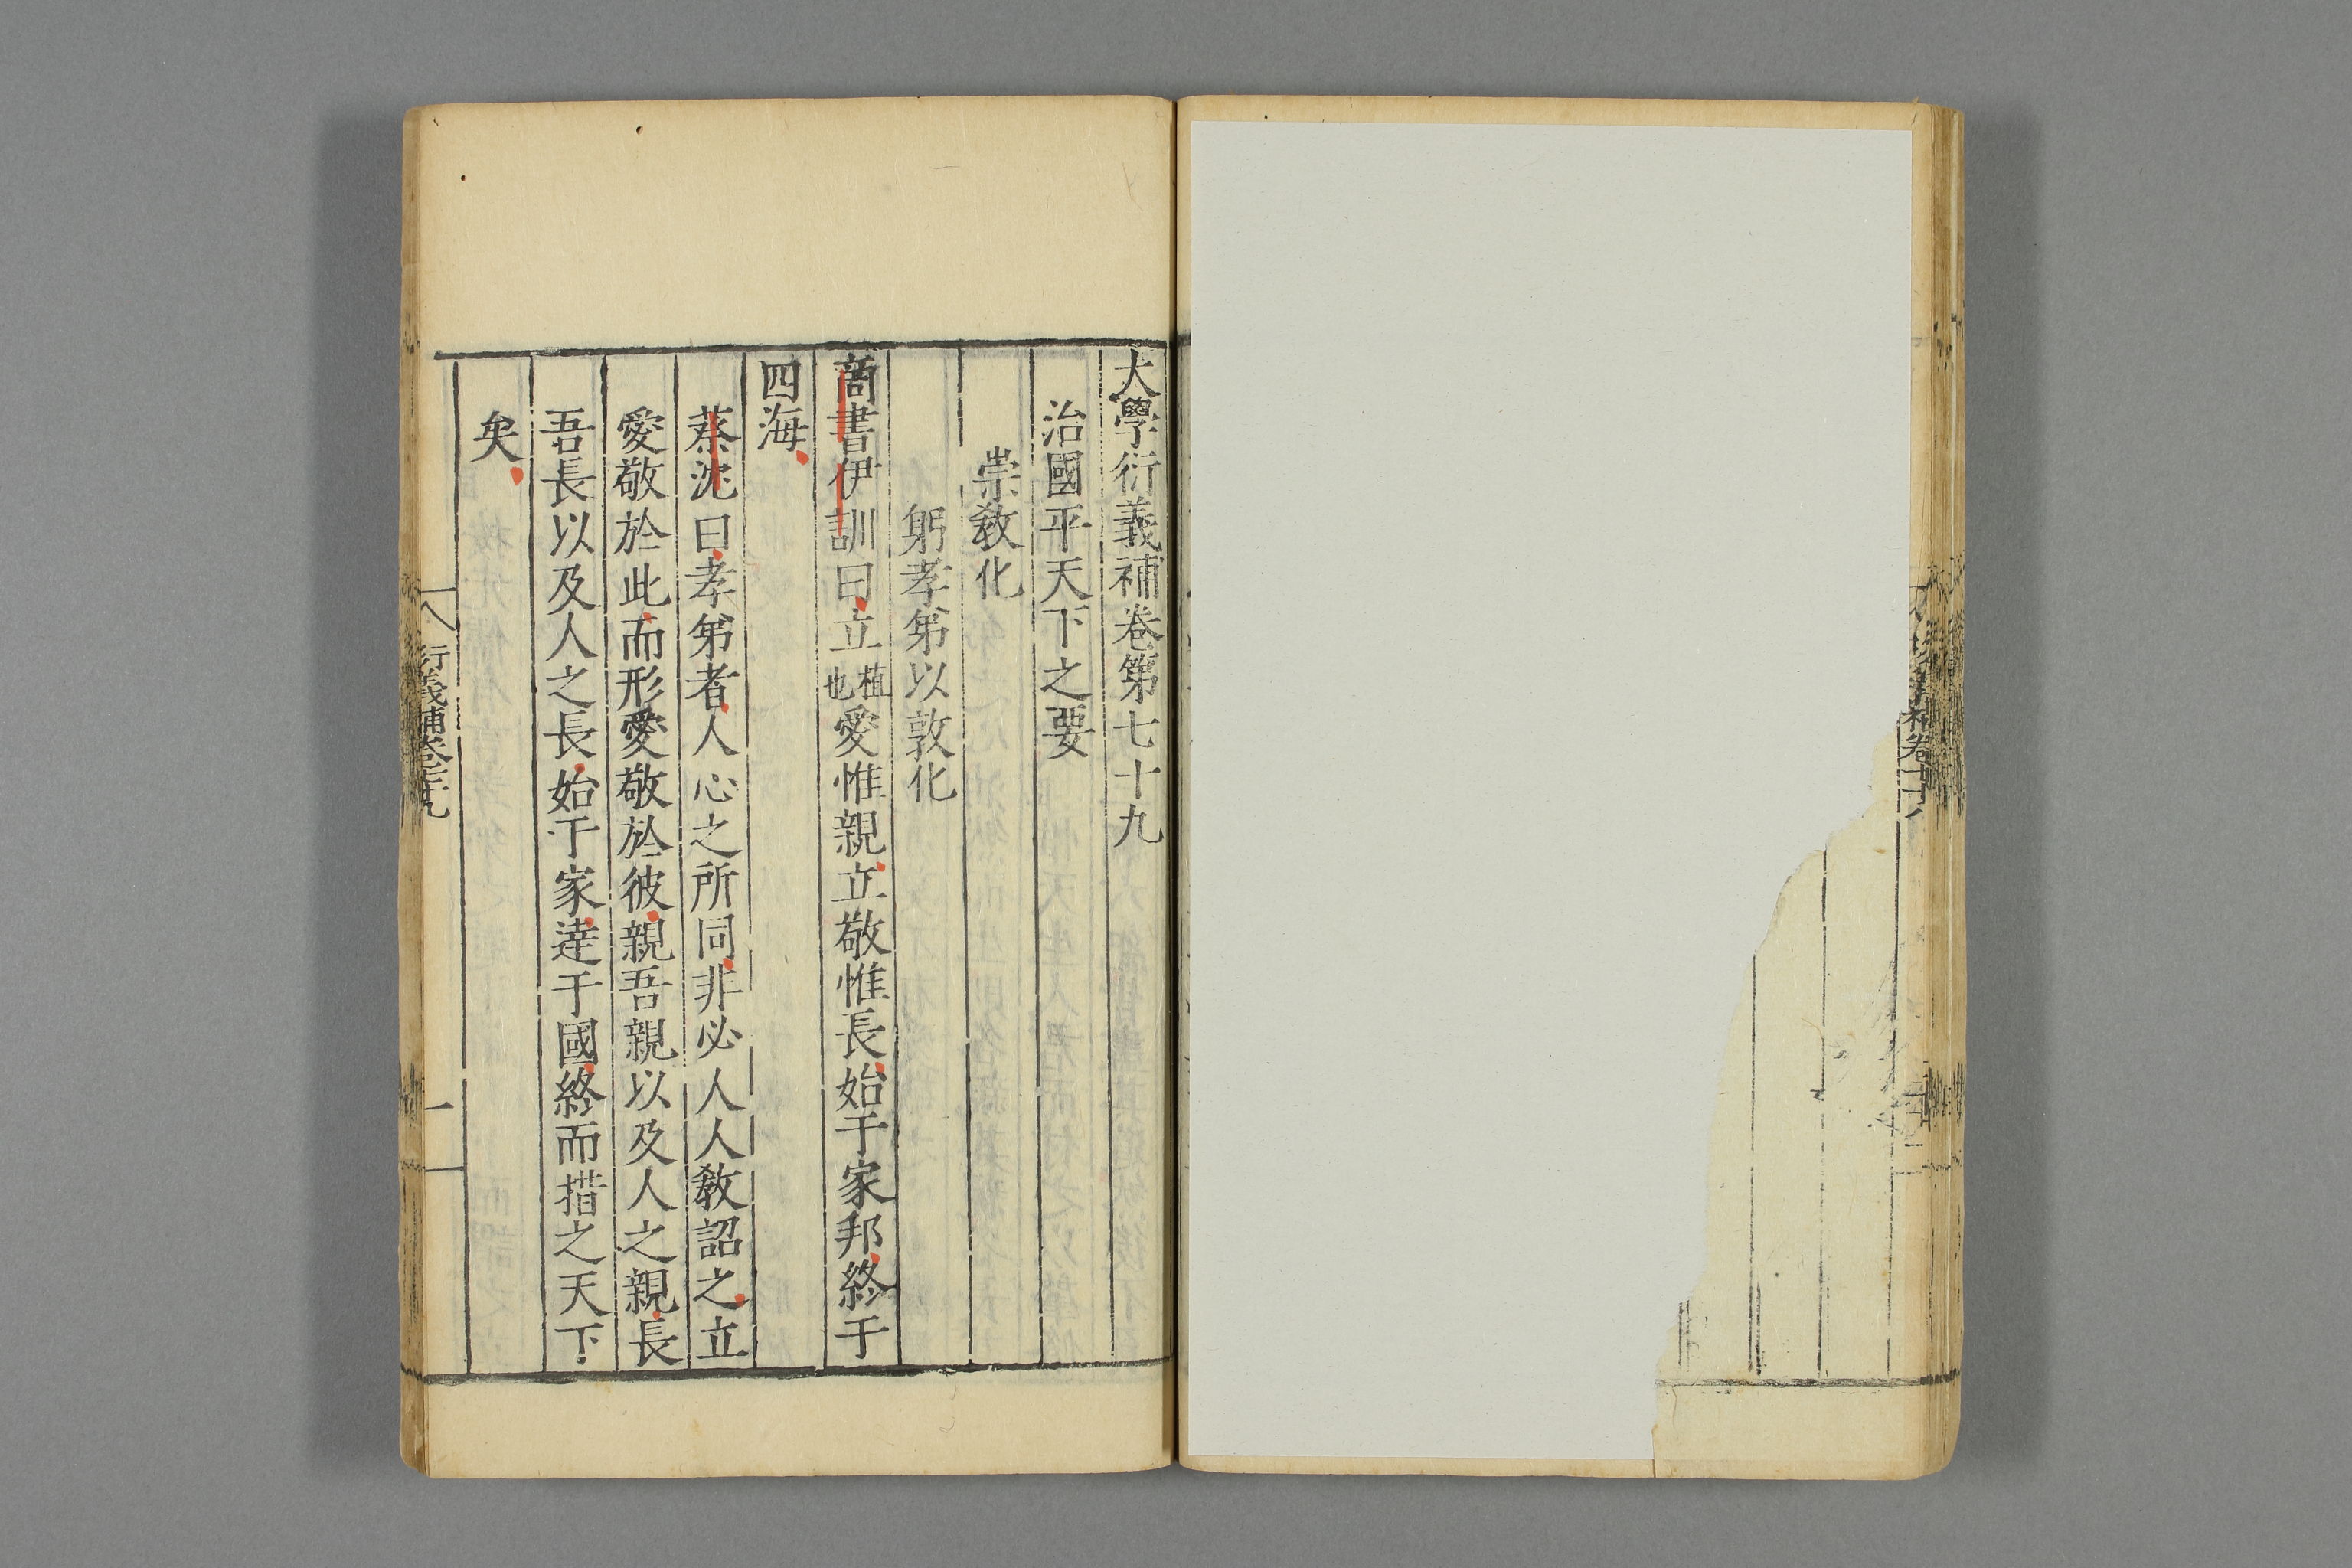 大學衍義補卷第七十九
治國平天下之要
崇敎化
躬孝弟以敦化
商書伊訓曰立植也愛惟親立敬惟長始于家邦終于
四海
蔡沈曰孝弟者人心之所同非必人人敎詔之立
愛敬於此而形愛敬於彼親吾親以及人之親長
吾長以及人之長始于家達于國終而措之天下
矣
衍義補卷七十九
一